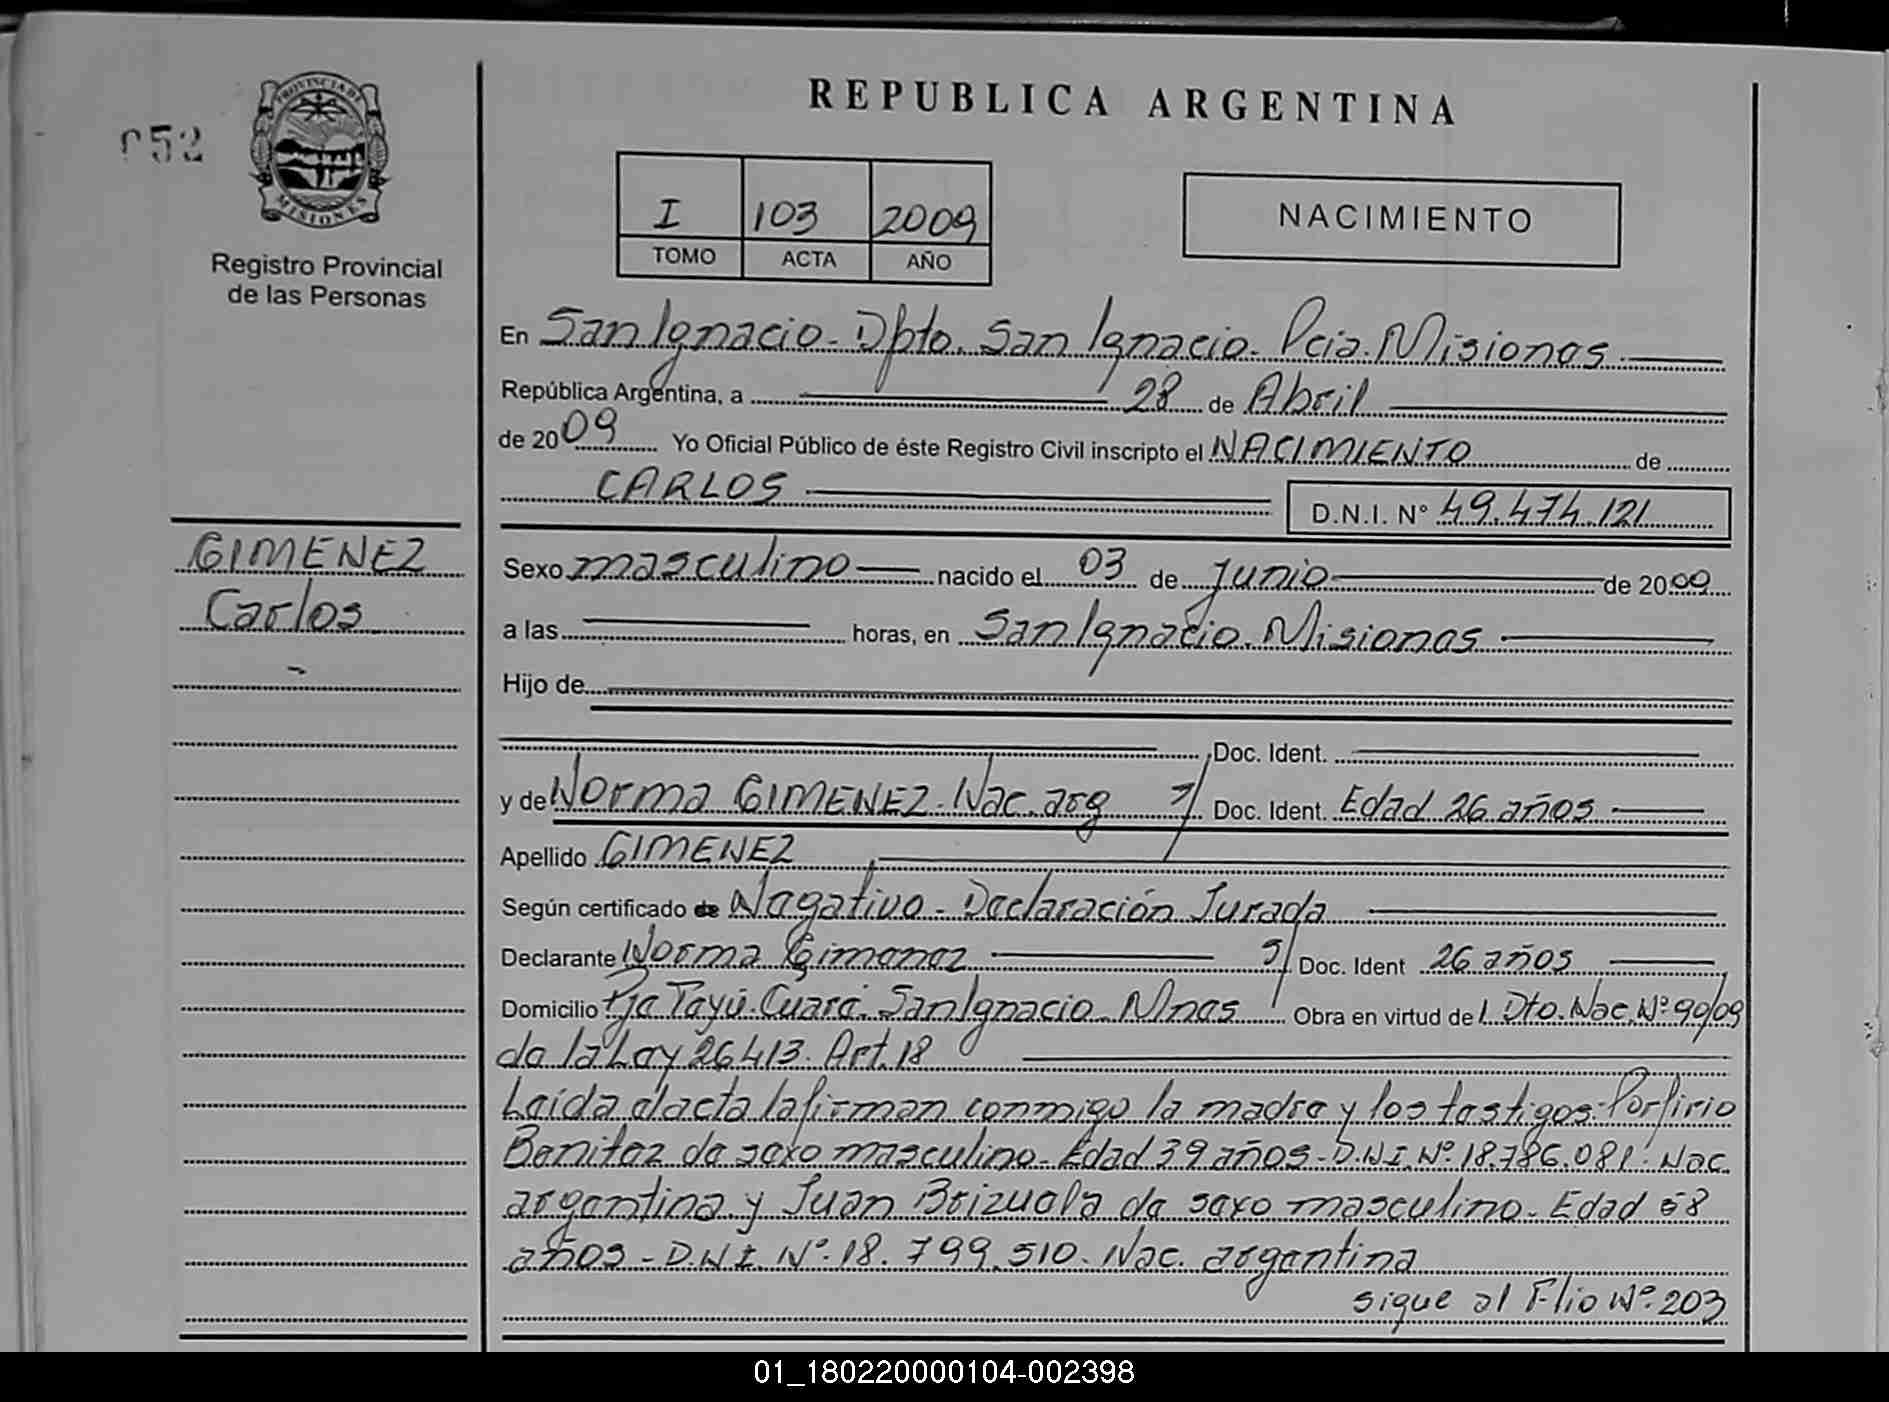 REPUBLICA ARGENTINA
052
PROVINCIA DE MISIONES
Registro Provincial
de las Personas
I 103 2009
TOMO ACTA AÑO
NACIMIENTO
En San Ignacio - Dpto. San Ignacio - Pcia. Misiones
República Argentina, a 28 de Abril
de 2009 Yo Oficial Público de éste Registro Civil inscripto el NACIMIENTO de
CARLOS D.N.I. N° 49.474.121
GIMENEZ
Carlos
Sexo masculino nacido el 03 de Junio de 2009
a las horas, en San Ignacio. Misiones
Hijo de
Doc. Ident.
y de Norma GIMENEZ. Nac. arg Doc. Ident. Edad 26 años
Apellido GIMENEZ
Según certificado de Negativo - Declaración Jurada
Declarante Norma Gimenez Doc. Ident 26 años
Domicilio Pje Tayú-Cuaré. San Ignacio. Mnes Obra en virtud del Dto. Nac. N° 90/09
de la Ley 26413. Art. 18
Leída el acta la firman conmigo la madre y los testigos: Porfirio
Benitez de sexo masculino - Edad 39 años - D.N.I. N° 18.786.081. Nac.
argentina y Juan Brizuela de sexo masculino - Edad 58
años - D.N.I. N° 18.799.510. Nac. argentina
sigue al Flio N° 203
01_180220000104-002398